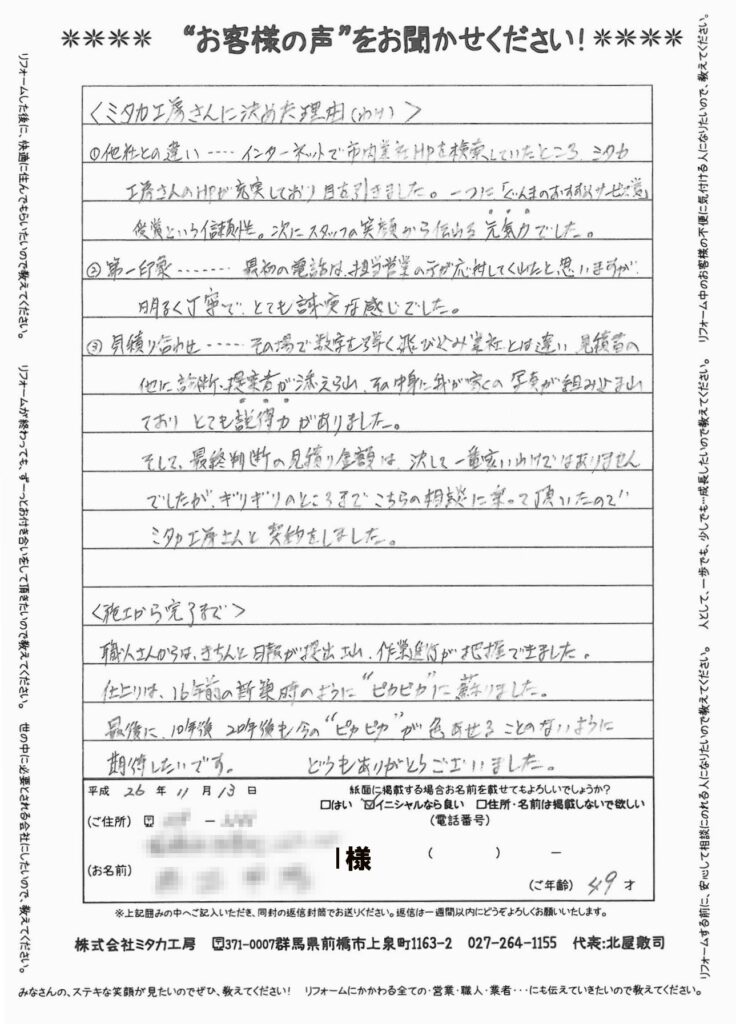 **** “お客様の声”をお聞かせください！ ****
<ミタカ工房さんに決めた理由>
①他社との違い ‥‥ インターネットで市内業社HPを検索していたところ、ミタカ
工房さんのHPが充実しており目を引きました。一つに「ぐんまのおすすめサービス賞」
受賞という信頼性。次にスタッフの笑顔から伝わる元気力でした。
②第一印象 ‥‥‥‥ 最初の電話は、担当営業の方が応対してくれたと思いますが、
明るく丁寧で、とても誠実な感じでした。
③見積り合わせ ‥‥‥ その場で数字を弾く飛び込み業社とは違い、見積書の
他に診断、提案書が添えられ、その中身に我が家の写真が組み込まれ
ており とても説得力がありました。
そして、最終判断の見積り金額は、決して一番安いわけではありません
でしたが、ギリギリのところまでこちらの相談に乗って頂いたので
ミタカ工房さんと契約をしました。
<施工から完了まで>
職人さんからは、きちんと日報が提出され、作業進行が把握できました。
仕上りは、16年前の新築時のように“ピカピカ”に蘇りました。
最後に、10年後 20年後も今の“ピカピカ”が色あせることのないように
期待したいです。 どうもありがとうございました。
平成 26 年 11 月 13 日
紙面に掲載する場合お名前を載せてもよろしいでしょうか？
□はい ☑イニシャルなら良い □住所・名前は掲載しないで欲しい
(ご住所) 〒 －
(電話番号)
( ) －
(お名前) 様
(ご年齢) 49 才
※上記囲みの中へご記入いただき、同封の返信封筒でお送りください。返信は一週間以内にどうぞよろしくお願いいたします。
株式会社ミタカ工房 〒371-0007群馬県前橋市上泉町1163-2 027-264-1155 代表:北屋敷司
みなさんの、ステキな笑顔が見たいのでぜひ、教えてください！ リフォームにかかわる全ての・営業・職人・業者・・・にも伝えていきたいので教えてください。
リフォームした後に、快適に住んでもらいたいので教えてください。 リフォームが終わっても、ずーっとお付き合いをして頂きたいので教えてください。 世の中に必要とされる会社にしたいので、教えてください。
リフォームする前に、安心して相談にのれる人になりたいので教えてください。 人として、一歩でも、少しでも…成長したいので教えてください。 リフォーム中のお客様の不便に気付ける人になりたいので、教えてください。